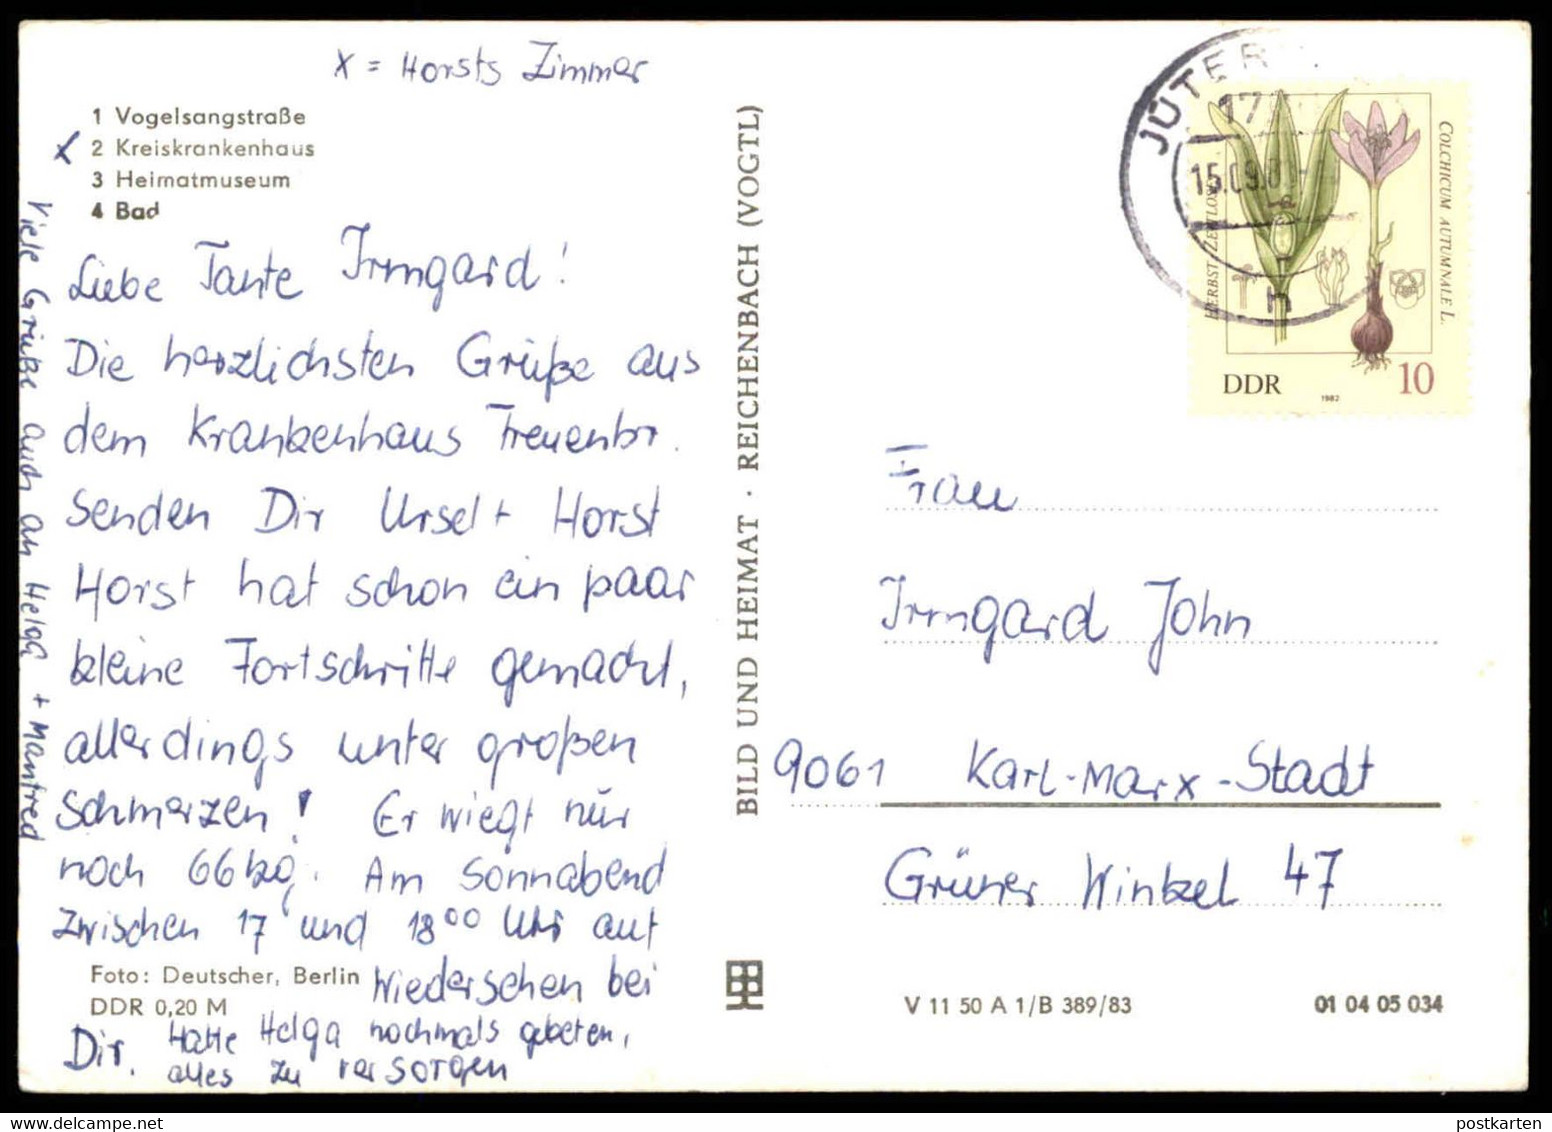 x = Horsts Zimmer
1 Vogelsangstraße
x 2 Kreiskrankenhaus
3 Heimatmuseum
4 Bad
Liebe Tante Irmgard!
Die herzlichsten Grüße aus
dem Krankenhaus Treuenbr.
senden Dir Ursel + Horst
Horst hat schon ein paar
kleine Fortschritte gemacht,
allerdings unter großen
Schmerzen! Er wiegt nur
noch 66 kg. Am Sonnabend
zwischen 17 und 18⁰⁰ Uhr auf
Wiedersehen bei
Dir. Hatte Helga nochmals gebeten,
alles zu versorgen
Viele Grüße auch an Helga + Manfred
Foto: Deutscher, Berlin
DDR 0,20 M
BILD UND HEIMAT · REICHENBACH (VOGTL)
JÜTER
17
15.09.8
HERBST-ZEITLOSE
COLCHICUM AUTUMNALE L.
DDR 1982 10
Frau
Irmgard John
9061 Karl-Marx-Stadt
Grüner Winkel 47
V 11 50 A 1/B 389/83
01 04 05 034
postkarten